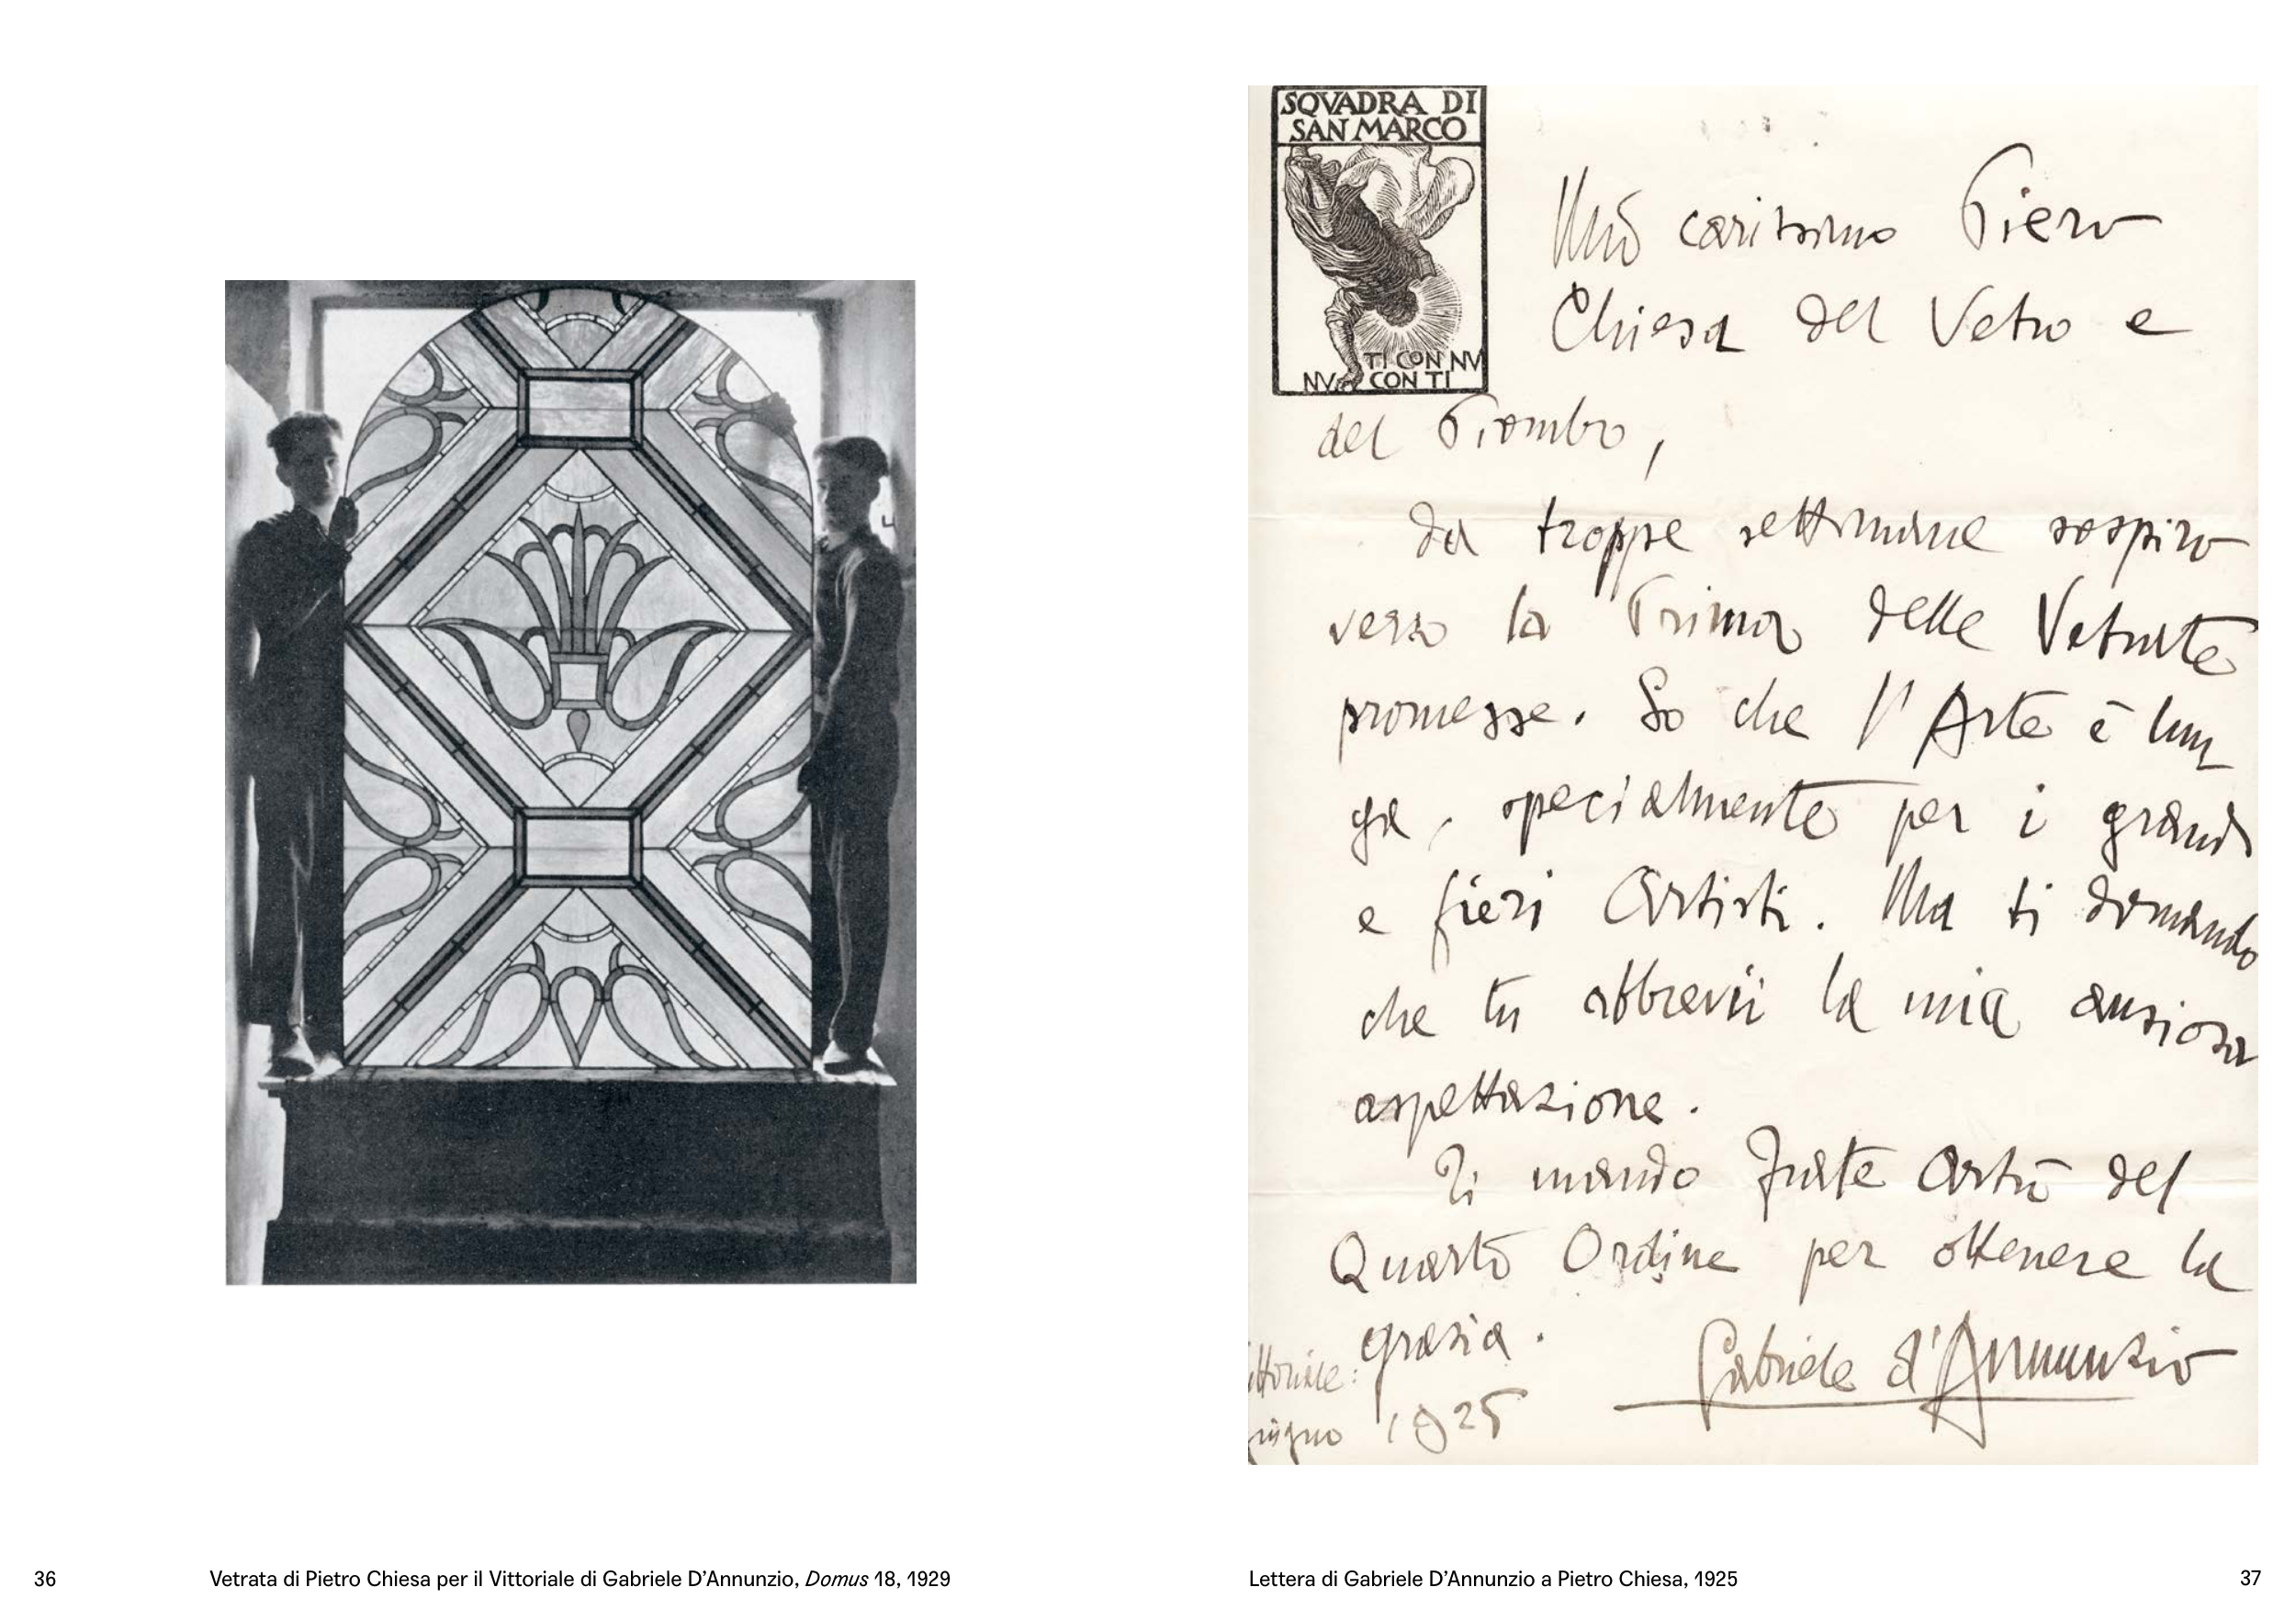 SQVADRA DI
SAN MARCO
TI CON NV
NV CON TI
Mio carissimo Piero
Chiesa del Vetro e
del Piombo,
da troppe settimane sospiro
verso la Prima delle Vetrate
promesse. So che l'Arte è lun
ga, specialmente per i grandi
e fieri Artisti. Ma ti domando
che tu abbrevii la mia ansiosa
aspettazione.
Ti mando frate Artù del
Quarto Ordine per ottenere la
grazia.
ittoriale:
giugno 1925
Gabriele d'Annunzio
36
Vetrata di Pietro Chiesa per il Vittoriale di Gabriele D'Annunzio, Domus 18, 1929
Lettera di Gabriele D'Annunzio a Pietro Chiesa, 1925
37